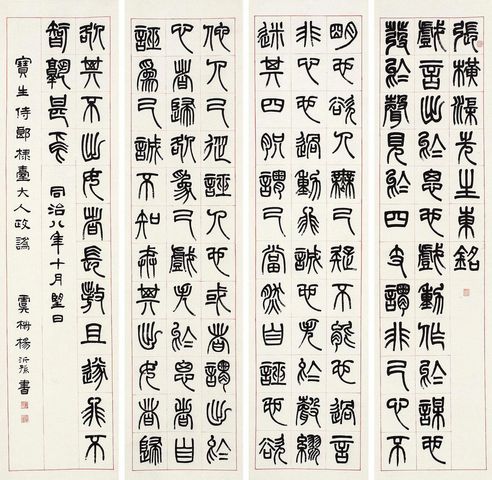 張橫渠先生東銘
戲言出於思也戲動作於謀也
發於聲見於四支謂非己心不
明也欲人無己疑不能也過言
非心也過動非誠也失於聲繆
迷其四胑謂己當然自誣也欲
他人己從誣人也或者謂出於
心者歸咎為己戲失於思者自
誣為己誠不知戒其出女者歸
咎其不出女者長敖且遂非不
智孰甚焉 同治八年十月朢日
寶生侍郎棣臺大人政譌 虞楊沂孫書